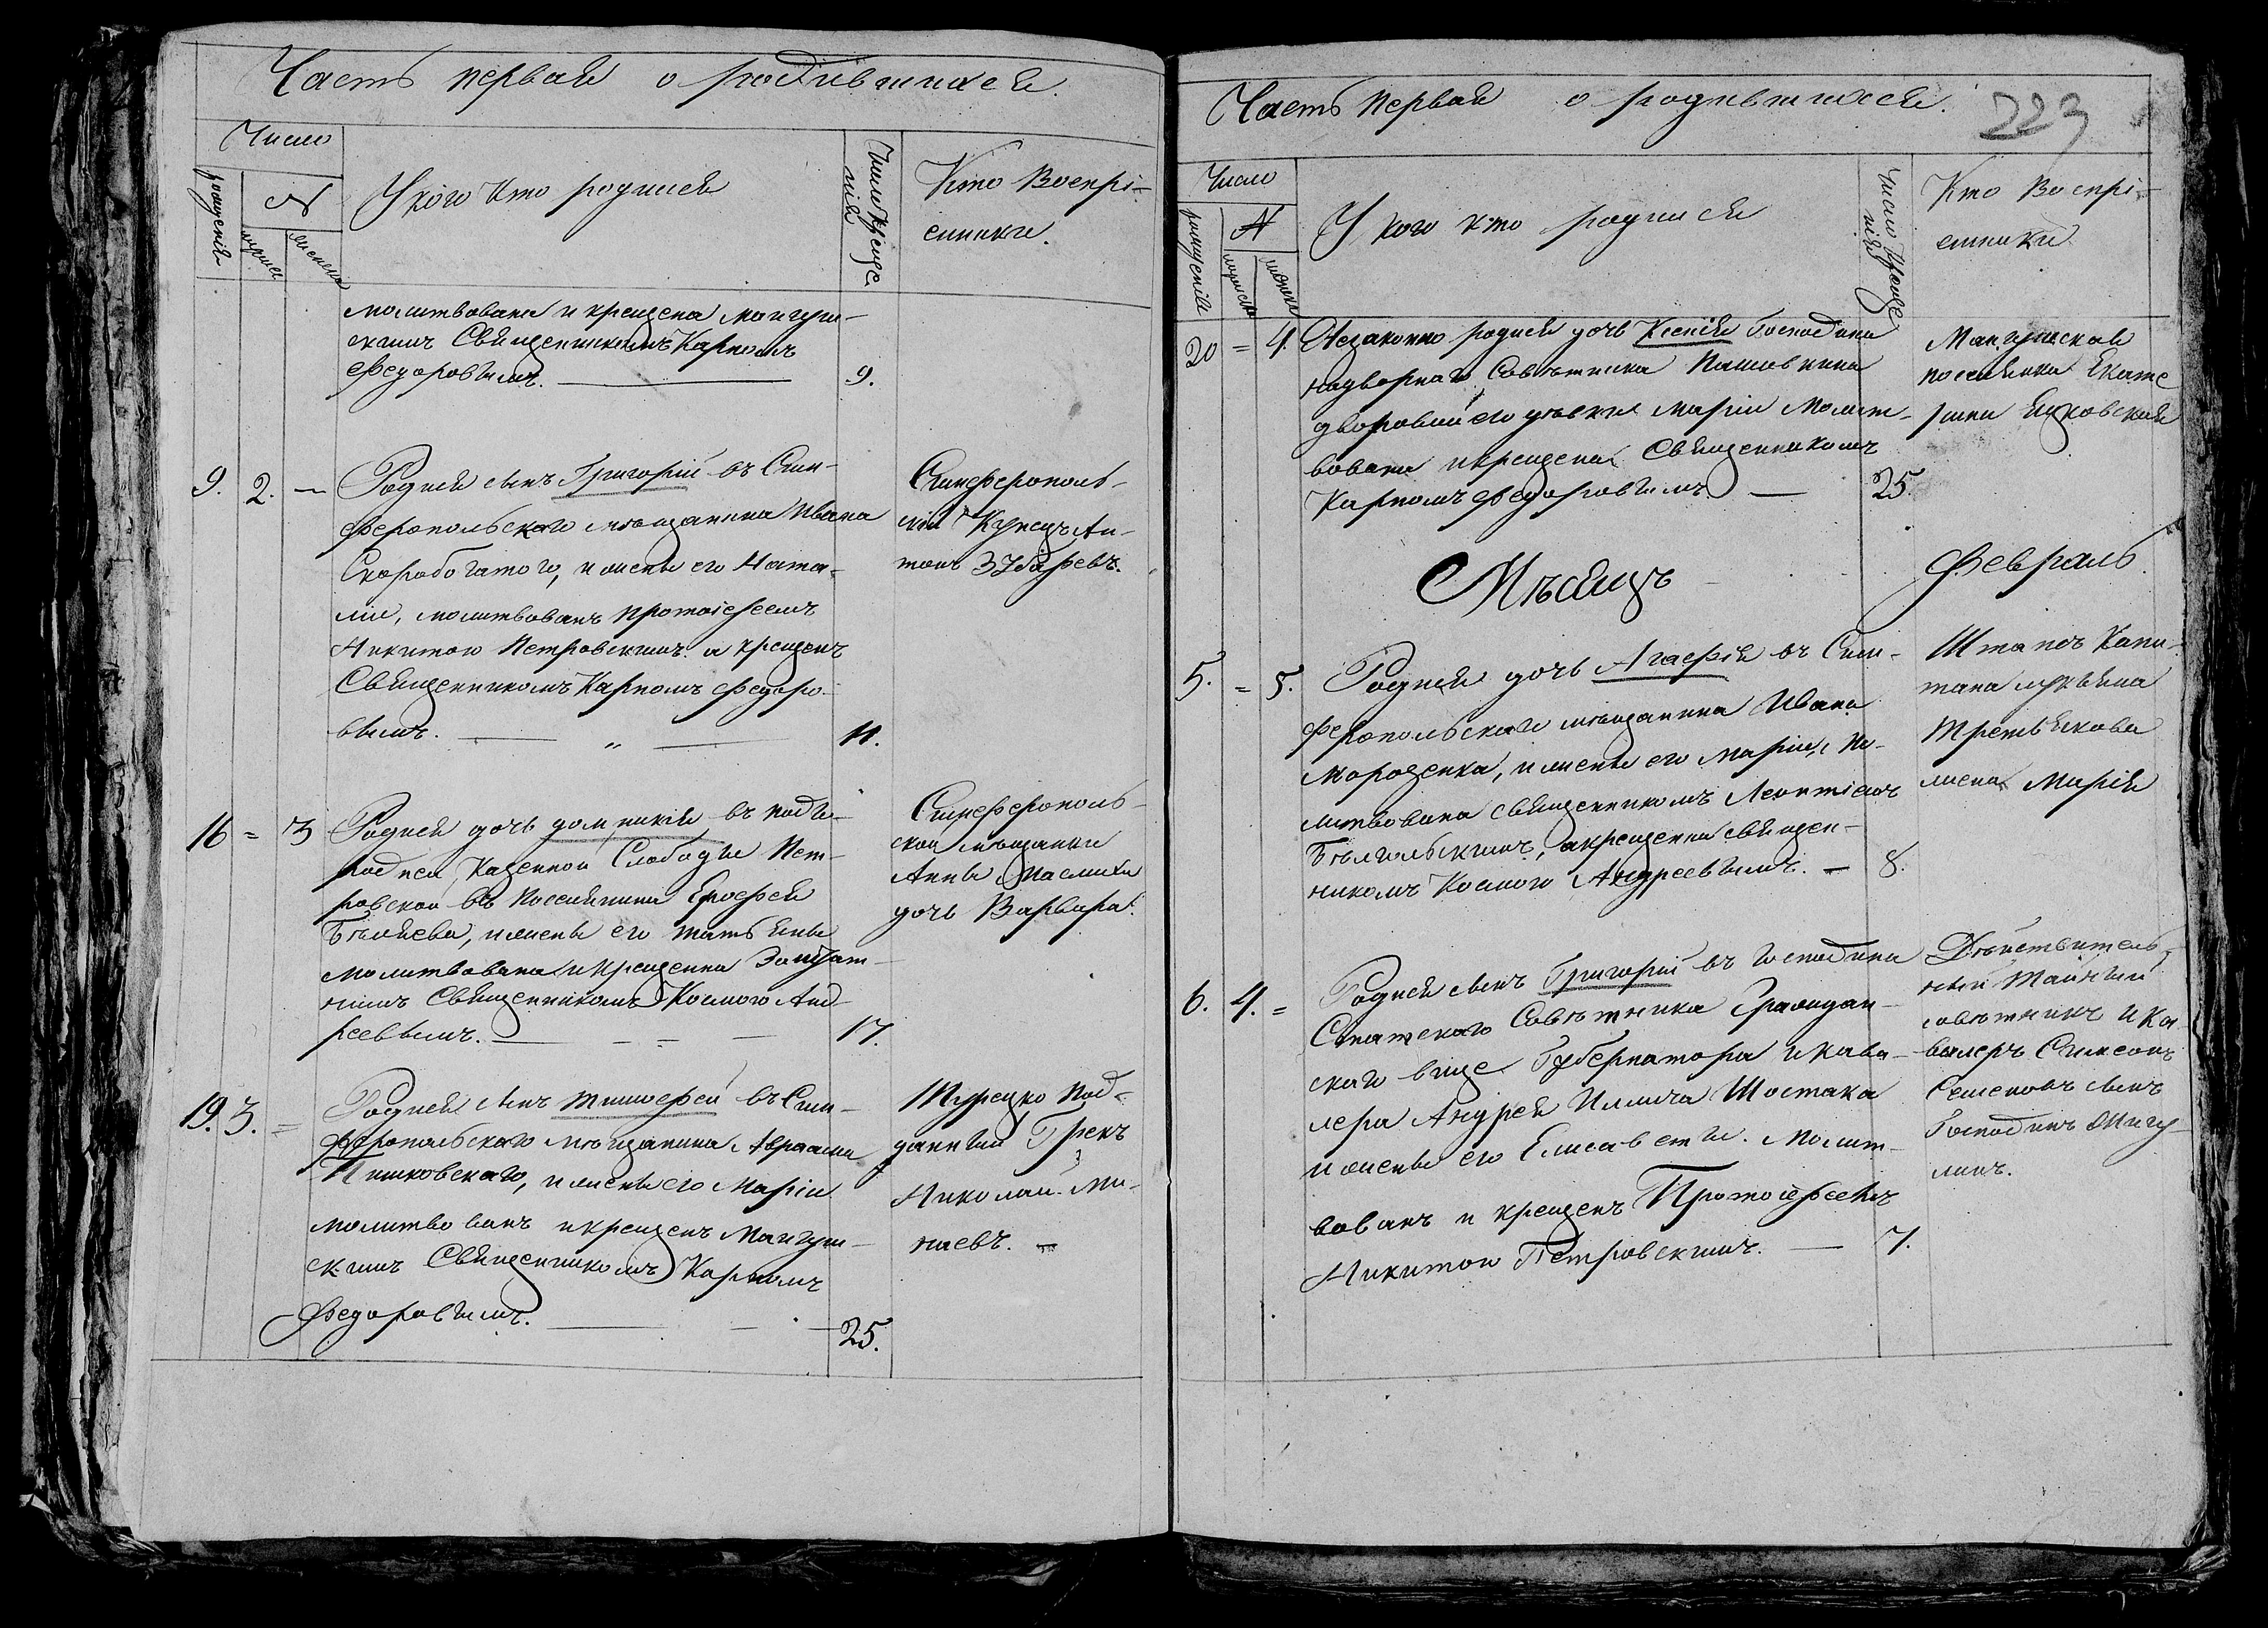 Часть первая о родившихся.
Число
рождения
N
мужеска
женска
У кого кто родился
Число креще-
нія
Кто Воспрі-
емники.
молитвована и крещена мангуш-
скимъ Священникомъ Карпомъ
Федоровымъ. 9.
9. 2. — Родился сынъ Григорій въ Сим-
феропольскаго мѣщанина Ивана
Скоробогатого, и жены его Ната-
ліи, молитвованъ протоіереемъ
Никитою Петровскимъ и крещенъ
Священникомъ Карпомъ Федоро-
вымъ. 11.
Симферополь-
скій Купецъ Ан-
тонъ Зубаревъ.
16 = 3 Родился дочь Домникія въ подго-
родней Казенной Слободы Пет-
ровской въ Поселянина Ерофея
Бѣляева, и жены его Татьяны
молитвована и крещенна Заштат-
нымъ Священникомъ Космою Анд-
реевымъ. 17.
Симферополь-
ской мѣщанки
Анны
дочь Варвара.
19. 3. = Родился сынъ Тимофей въ Сим-
феропольскаго мѣщанина Авраама
и жены его Маріи
молитвованъ и крещенъ Мангуш-
скимъ Священникомъ Карпомъ
Федоровымъ. 25.
Турецко под-
данный Грекъ
Николай Ми-
наевъ.
Часть первая о родившихся.
223
Число
рожденія
N
мужеска
женска
У кого кто родился
Число Креще-
нія
Кто Воспрі-
емники
20 = 4. Незаконно родился дочь Ксенія Господина
надворнаго Совѣтника
дворовой его дѣвки Маріи Молит-
вована и крещена Священникомъ
Карпомъ Федоровымъ — 25.
Мангушская
поселянка Екате
рина
Мѣсяцъ Февраль
5. = 5. Родился дочь Агафія въ Сим-
феропольскаго мѣщанина Ивана
Морозенка, и жены его Маріи, Мо-
литвована священникомъ Леонтіемъ
а крещенна священ-
никомъ Космою Андреевымъ. — 8.
Штапсъ Капи-
тана Лукьяна
Третьякова
жена Марія
6. 4. = Родился сынъ Григорій въ Господина
Статскаго Совѣтника Граждан-
скаго вице Губернатора и кава-
лера Андрея Ильича Шостака
и жены его Елисаветы. Молит-
вованъ и крещенъ Протоіереемъ
Никитою Петровскимъ. — 7.
Дѣйствитель-
ный Тайный
совѣтникъ и Ка
валеръ Симеонъ
Семеновъ сынъ
Господинъ Жигу-
линъ.